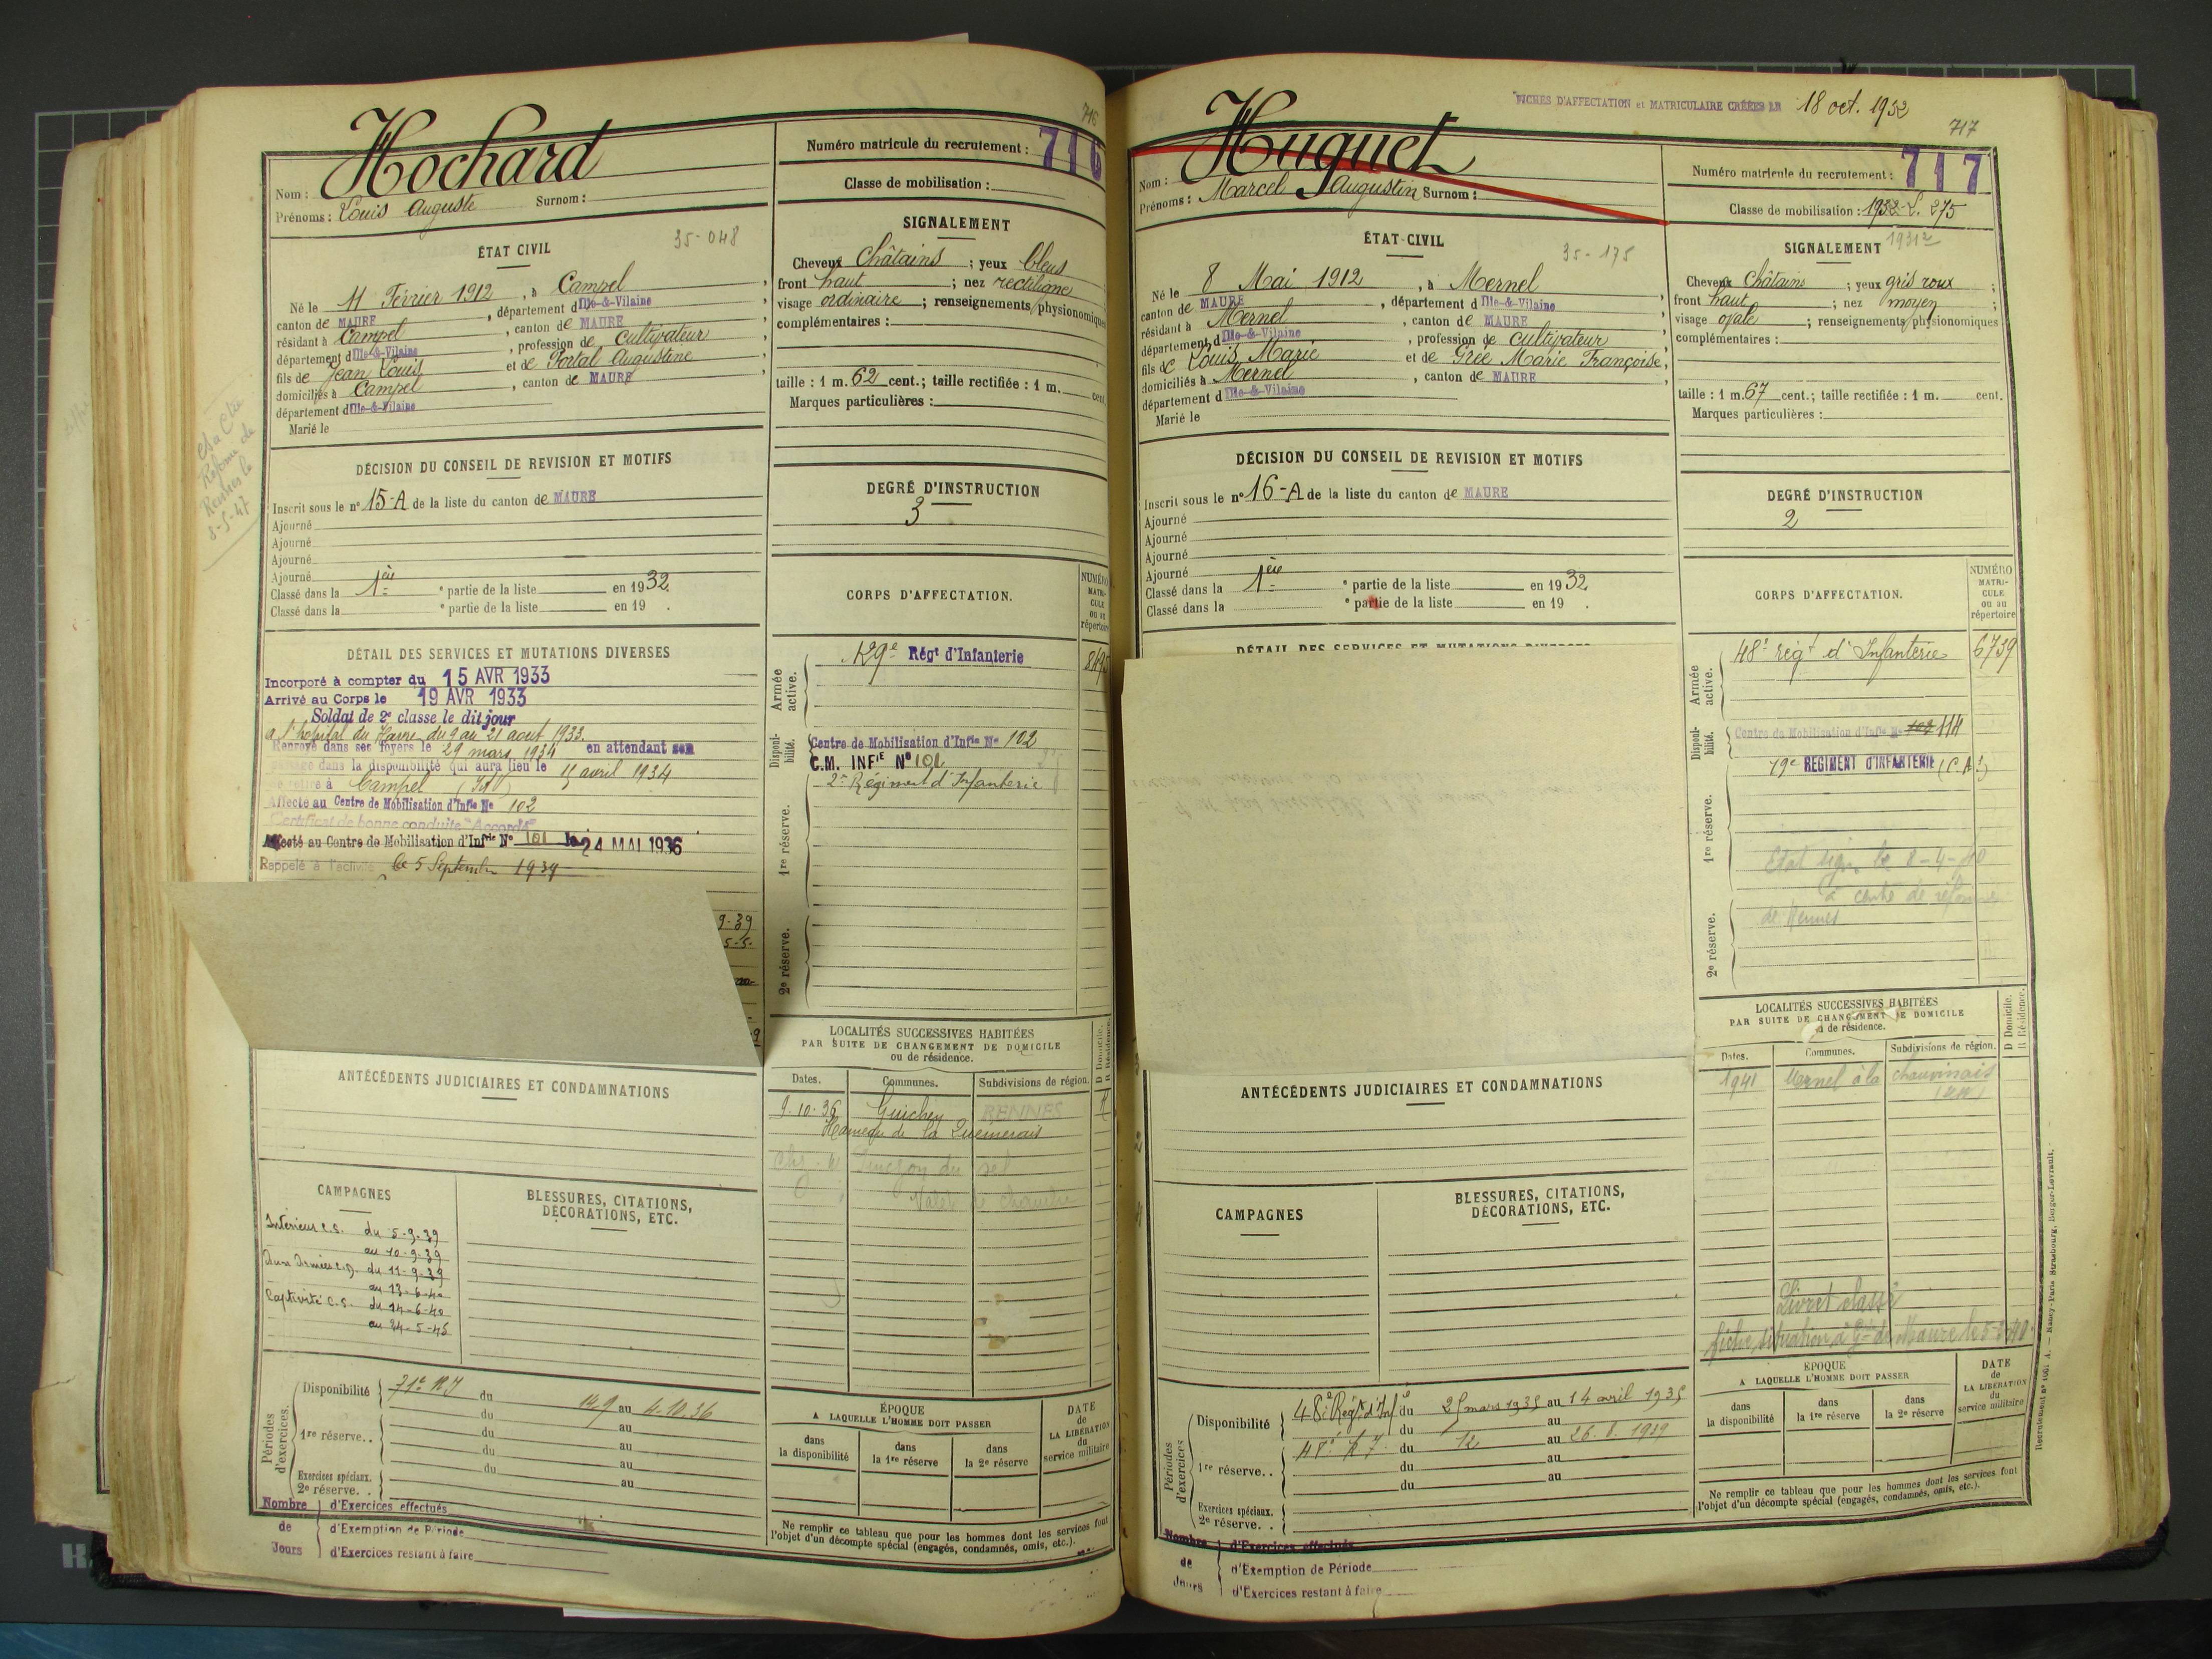 716
Hochard
Nom :
Prénoms : Louis Auguste Surnom :
Numéro matricule du recrutement : 716
Classe de mobilisation :
ÉTAT CIVIL
35-048
Né le 11 Février 1912, à Campel,
canton de MAURE, département d Ille-&-Vilaine
résidant à Campel, canton de MAURE,
département d Ille-&-Vilaine, profession de cultivateur
fils de Jean Louis et de Portal Augustine,
domiciliés à Campel, canton de MAURE
département d Ille-&-Vilaine
Marié le
SIGNALEMENT
Cheveux Châtains ; yeux bleus
front haut ; nez rectiligne
visage ordinaire ; renseignements physionomiques
complémentaires :
taille : 1 m. 62 cent.; taille rectifiée : 1 m. cent.
Marques particulières :
Réforme de
Rennes le
8-5-47
DÉCISION DU CONSEIL DE REVISION ET MOTIFS
Inscrit sous le n° 15-A de la liste du canton de MAURE
Ajourné
Ajourné
Ajourné
Ajourné
Classé dans la 1ère e partie de la liste en 1932.
Classé dans la e partie de la liste en 19 .
DEGRÉ D'INSTRUCTION
3
DÉTAIL DES SERVICES ET MUTATIONS DIVERSES
Incorporé à compter du 15 AVR 1933
Arrivé au Corps le 19 AVR 1933
Soldat de 2e classe le dit jour
a l'hopital du Havre du 9 au 21 aout 1933.
Renvoyé dans ses foyers le 29 mars 1934 en attendant son
passage dans la disponibilité qui aura lieu le 15 avril 1934
se retire à Campel (I&V)
Affecté au Centre de Mobilisation d'Infie No 102
Certificat de bonne conduite "Accordé"
Affecté au Centre de Mobilisation d'Infrie No 101 le 24 MAI 1936
Rappelé à l'activité le 5 Septembre 1939
9-39
5-5-
CORPS D'AFFECTATION.
NUMÉRO
MATRI-
CULE
ou au
répertoire
Armée active.
129e Régt d'Infanterie
Disponibilité.
Centre de Mobilisation d'Infie No 102
C.M. INFIE No 101
2e Régiment d'Infanterie
1re réserve.
2e réserve.
LOCALITÉS SUCCESSIVES HABITÉES
PAR SUITE DE CHANGEMENT DE DOMICILE
ou de résidence.
D Domicile.
R Résidence.
Dates. Communes. Subdivisions de région.
9-10-36 Guichen RENNES R
Hameau de la Quemerais
ANTÉCÉDENTS JUDICIAIRES ET CONDAMNATIONS
CAMPAGNES
Intérieur C.S. du 5-9-39
au 10-9-39
Aux Armées C.D. du 11-9-39
au 13-6-40
Captivité C.S. du 14-6-40
au 24-5-45
BLESSURES, CITATIONS,
DÉCORATIONS, ETC.
Périodes d'exercices.
Disponibilité 71e RI du 14-9 au 4-10-36
du au
1re réserve. . du au
du au
Exercices spéciaux. du au
2e réserve. .
Nombre de Jours
d'Exercices effectués
d'Exemption de Période
d'Exercices restant à faire
ÉPOQUE
A LAQUELLE L'HOMME DOIT PASSER
dans la disponibilité
dans la 1re réserve
dans la 2e réserve
DATE
de
LA LIBÉRATION
du
service militaire
Ne remplir ce tableau que pour les hommes dont les services font
l'objet d'un décompte spécial (engagés, condamnés, omis, etc.).
FICHES D'AFFECTATION et MATRICULAIRE CRÉÉES LE 18 oct. 1932
717
Huguet
Nom :
Prénoms : Marcel Augustin Surnom :
Numéro matricule du recrutement : 717
Classe de mobilisation : 1932-S. 275
1931 2
ÉTAT CIVIL
35-175
Né le 8 Mai 1912, à Mernel,
canton de MAURE, département d Ille-&-Vilaine
résidant à Mernel, canton de MAURE,
département d Ille-&-Vilaine, profession de cultivateur
fils de Louis Marie et de Grée Marie Françoise,
domiciliés à Mernel, canton de MAURE
département d Ille-&-Vilaine
Marié le
SIGNALEMENT
Cheveux Châtains ; yeux gris roux ;
front haut ; nez moyen ;
visage ovale ; renseignements physionomiques
complémentaires :
taille : 1 m. 67 cent.; taille rectifiée : 1 m. cent.
Marques particulières :
DÉCISION DU CONSEIL DE REVISION ET MOTIFS
Inscrit sous le n° 16-A de la liste du canton de MAURE
Ajourné
Ajourné
Ajourné
Ajourné
Classé dans la 1ère e partie de la liste en 1932
Classé dans la e partie de la liste en 19 .
DEGRÉ D'INSTRUCTION
2
DÉTAIL DES SERVICES ET MUTATIONS DIVERSES
CORPS D'AFFECTATION.
NUMÉRO
MATRI-
CULE
ou au
répertoire
Armée active.
48e régt d'Infanterie 6739
Disponibilité.
Centre de Mobilisation d'Infie No 102 114
19e REGIMENT D'INFANTERIE
1re réserve.
le 8-4-40
centre de réforme
de Rennes
2e réserve.
LOCALITÉS SUCCESSIVES HABITÉES
PAR SUITE DE CHANGEMENT DE DOMICILE
ou de résidence.
D Domicile.
R Résidence.
Dates. Communes. Subdivisions de région.
1941 Mernel à la chauvinais
Livret classé
fiche situation à Gie de Maure le 5-3-40
ANTÉCÉDENTS JUDICIAIRES ET CONDAMNATIONS
CAMPAGNES
BLESSURES, CITATIONS,
DÉCORATIONS, ETC.
Périodes d'exercices.
Disponibilité 48e Régt d'Infie du 25 mars 1935 au 14 avril 1935
du au
48e R.I. du 12 au 26.8.1939
1re réserve. . du au
du au
Exercices spéciaux.
2e réserve. .
Nombre de Jours
d'Exercices effectués
d'Exemption de Période
d'Exercices restant à faire
ÉPOQUE
A LAQUELLE L'HOMME DOIT PASSER
dans la disponibilité
dans la 1re réserve
dans la 2e réserve
DATE
de
LA LIBÉRATION
du
service militaire
Ne remplir ce tableau que pour les hommes dont les services font
l'objet d'un décompte spécial (engagés, condamnés, omis, etc.).
Nancy-Paris Strasbourg, Berger-Levrault.